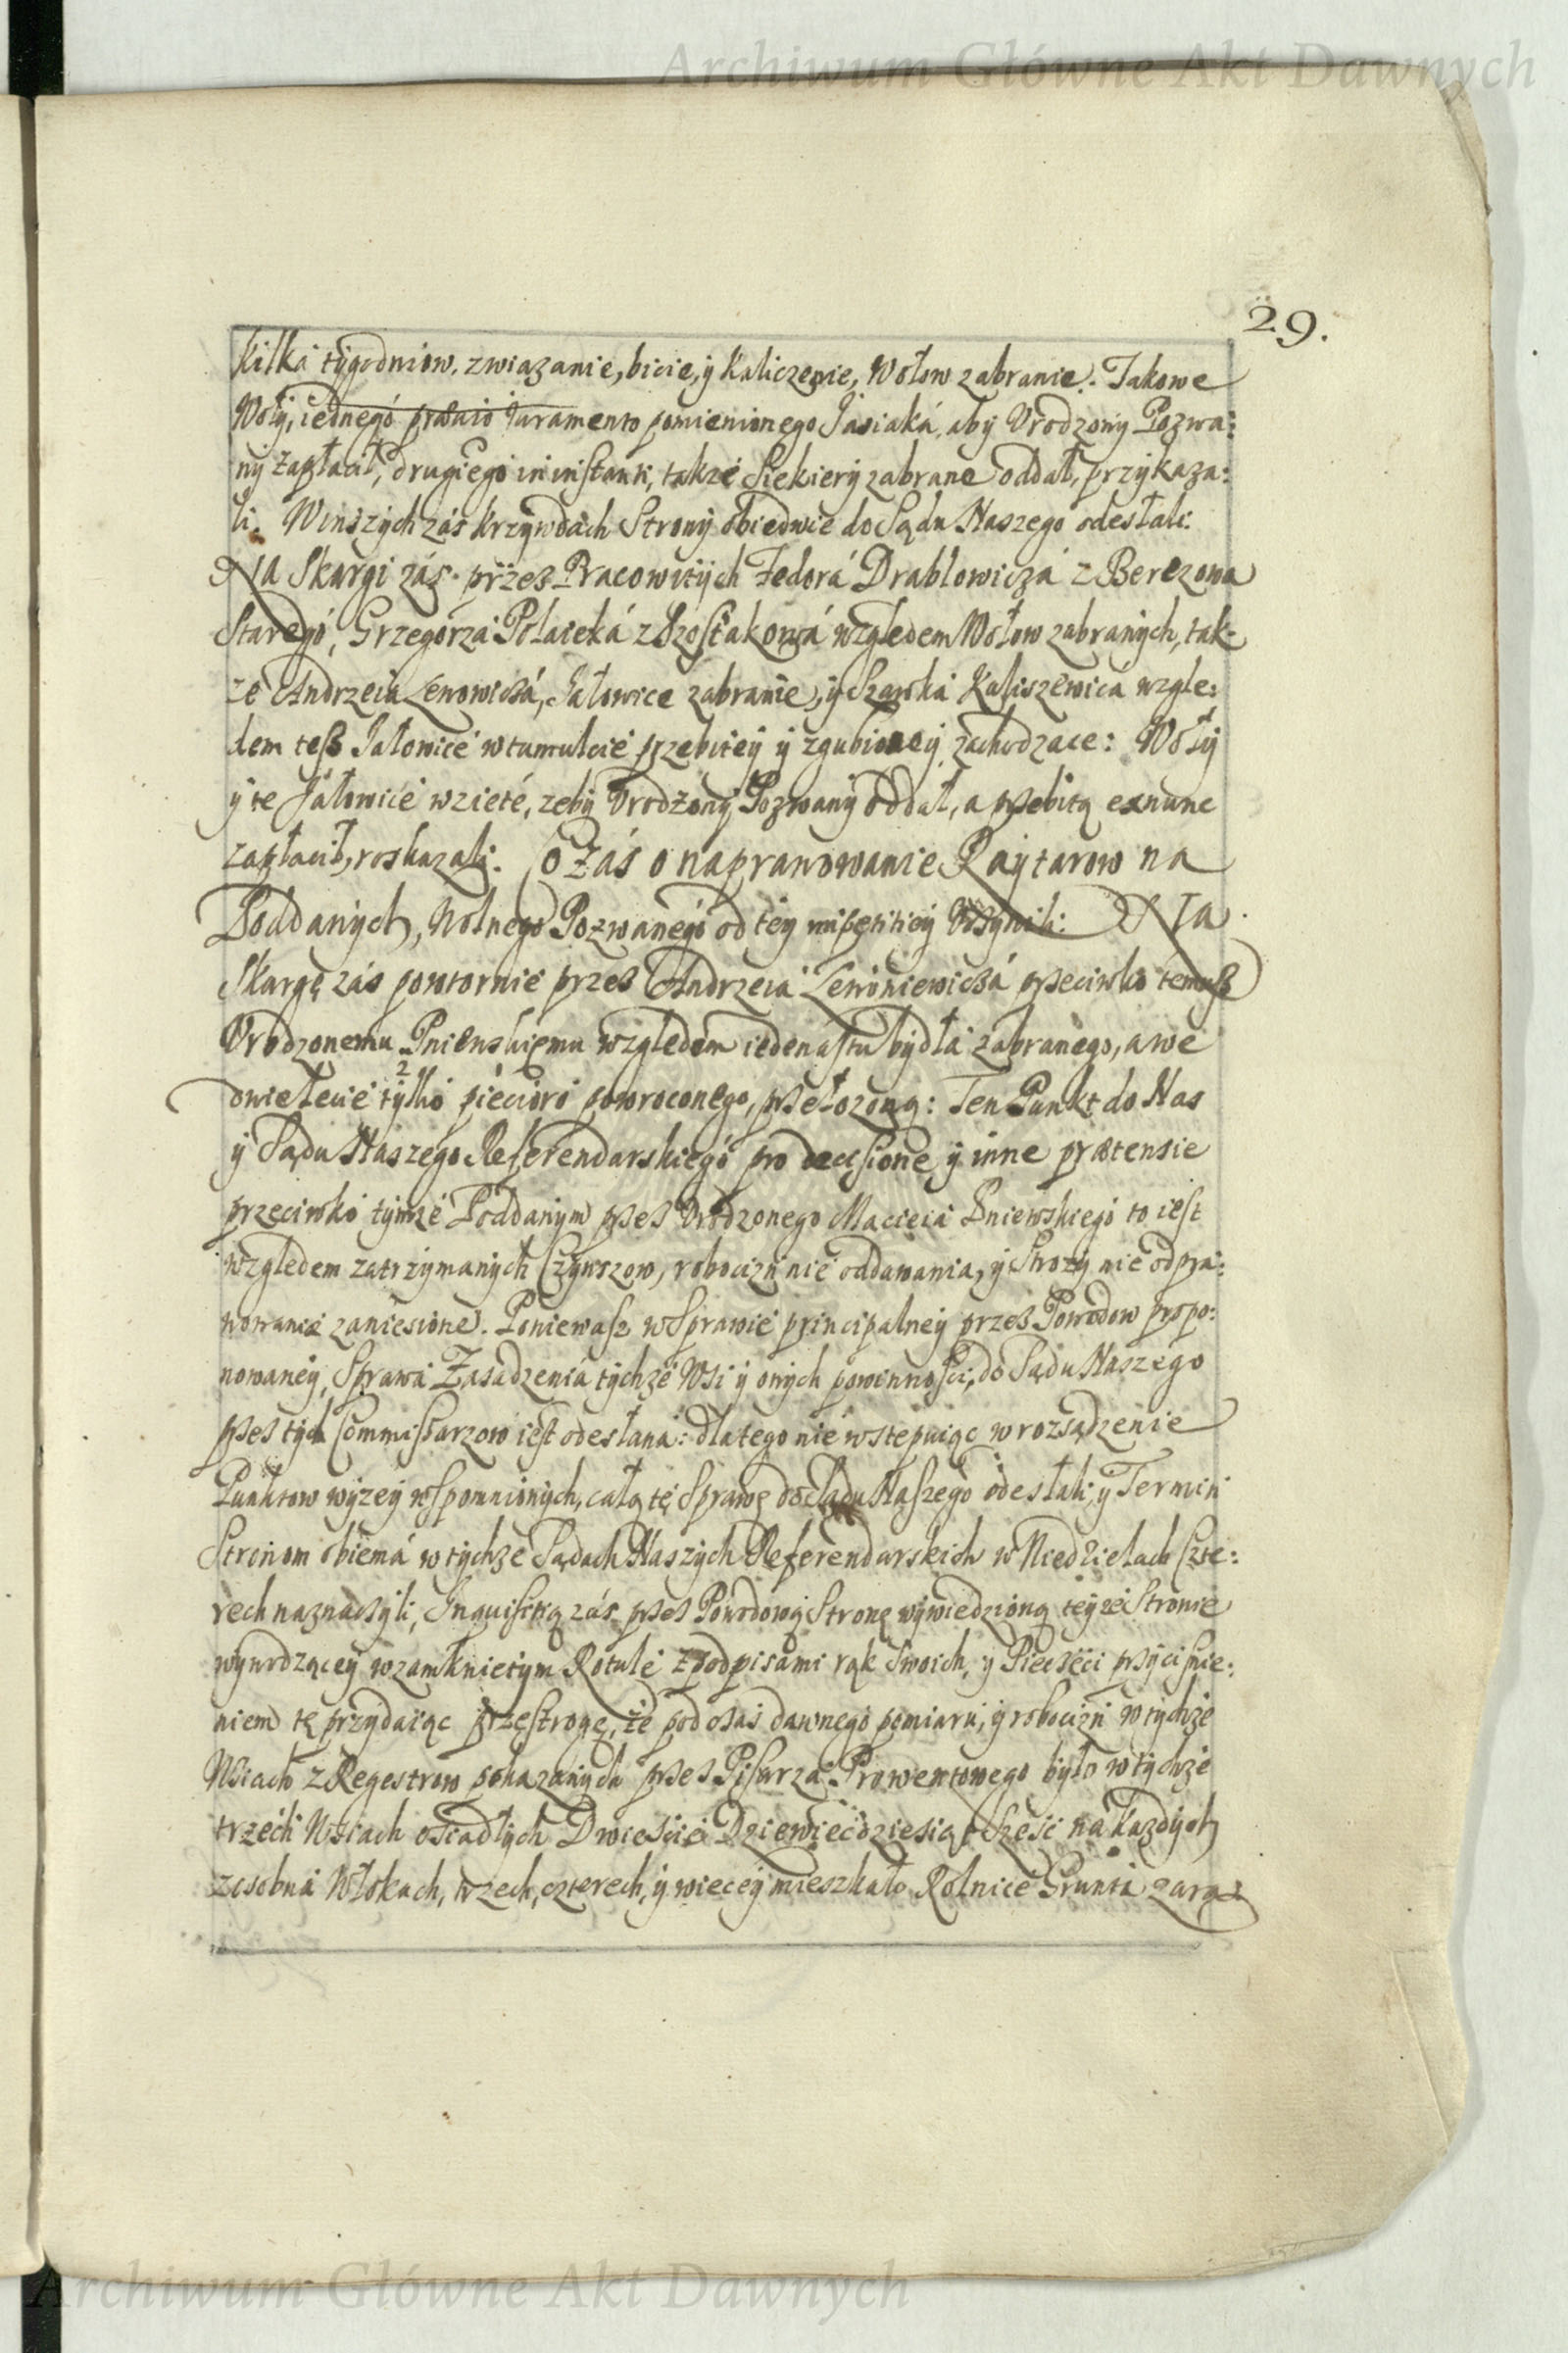 Archiwum Główne Akt Dawnych
29.
kilka tygodniow, zwiazanie, bicie, y kaliczenie, Wołow zabranie. Takowe
Woły, iednego prævio iuramento pomienionego Jasiaká, aby Vrodzony Pozwa:
ny zapłacił, drugiego in instanti, takze siekiery zabrane oddał, przykaza:
li. Winszych zás krzywdach Strony obiedwie do Sądu Naszego odesłali.
Na Skargi zás przez Pracowitych Fedorá Drablowiczá z Berezowa
Starego, Grzegorza Polaieká z Szostakowá względem Wołow zabranych, tak:
ze Andrzeia Lenowiczá, Jałowice zabranie, y Szawka Kaliszewica wzgle:
dem tesz Jałowice w tumulcie przebitey y zgubioney zachodzace: Woły
y te Jałowice wziete, zeby Vrodzony Pozwany oddał, a przebitą exnunc
zapłacił, roskazali. Co zás o naprawowanie Raytarow na
Poddanych, Wolnego Pozwanego od tey impetitiey Vczynili: Na
Skargę zás powtornie przez Andrzeia Lewoniewiczá przeciwko temusz
Vrodzonemu Pnienskiemu względem iedenastu bydła zabranego, a we
dwie lecie tylko piecioro powroconego, przełozoną: Ten Punkt do Nas
y Sądu Naszego Referendarskiego pro decisione y inne prætensie
przeciwko tymze Poddanym przez Vrodzonego Macieia Pniewskiego to iest
względem zatrzymanych Czynszow, robocizn nie oddawania, y Strozy nie odpra:
wowania zaniesione. Poniewasz w Sprawie principalney przez Powodow propo:
nowaney, Sprawa Zasadzenia tychze Wsi y onych powinnosci, do Sądu Naszego
przez tych Commissarzow iest odesłana: dlatego nie wstepuiąc w rozsądzenie
Punktow wyzey wspomnionych, całą tę Sprawę do Sądu Naszego odesłali, y Termin
Stronom obiemá w tychze Sądach Naszych Referendarskich w Niedzielach Czte:
rech naznaczyli, Inquisitią zás przez Powodową Stronę wywiedzioną teyze Stronie
wywodzącey w zamknietym Rotule z podpisami rąk Swoich, y Pieczęci przycisnie:
niem tę przydaiąc przestrogę, że podczas dawnego pomiaru, y robocizn w tychze
Wsiach z Regestrow pokazanych przez Pisarza Prowentowego było w tychze
trzech Wsiach osiadłych Dwiescie Dziewiecdziesiąt Szesc na kazdych
zosobna Włokach, trzech, czterech, y wiecey mieszkało Rolnice Grunta zaraz
Archiwum Główne Akt Dawnych